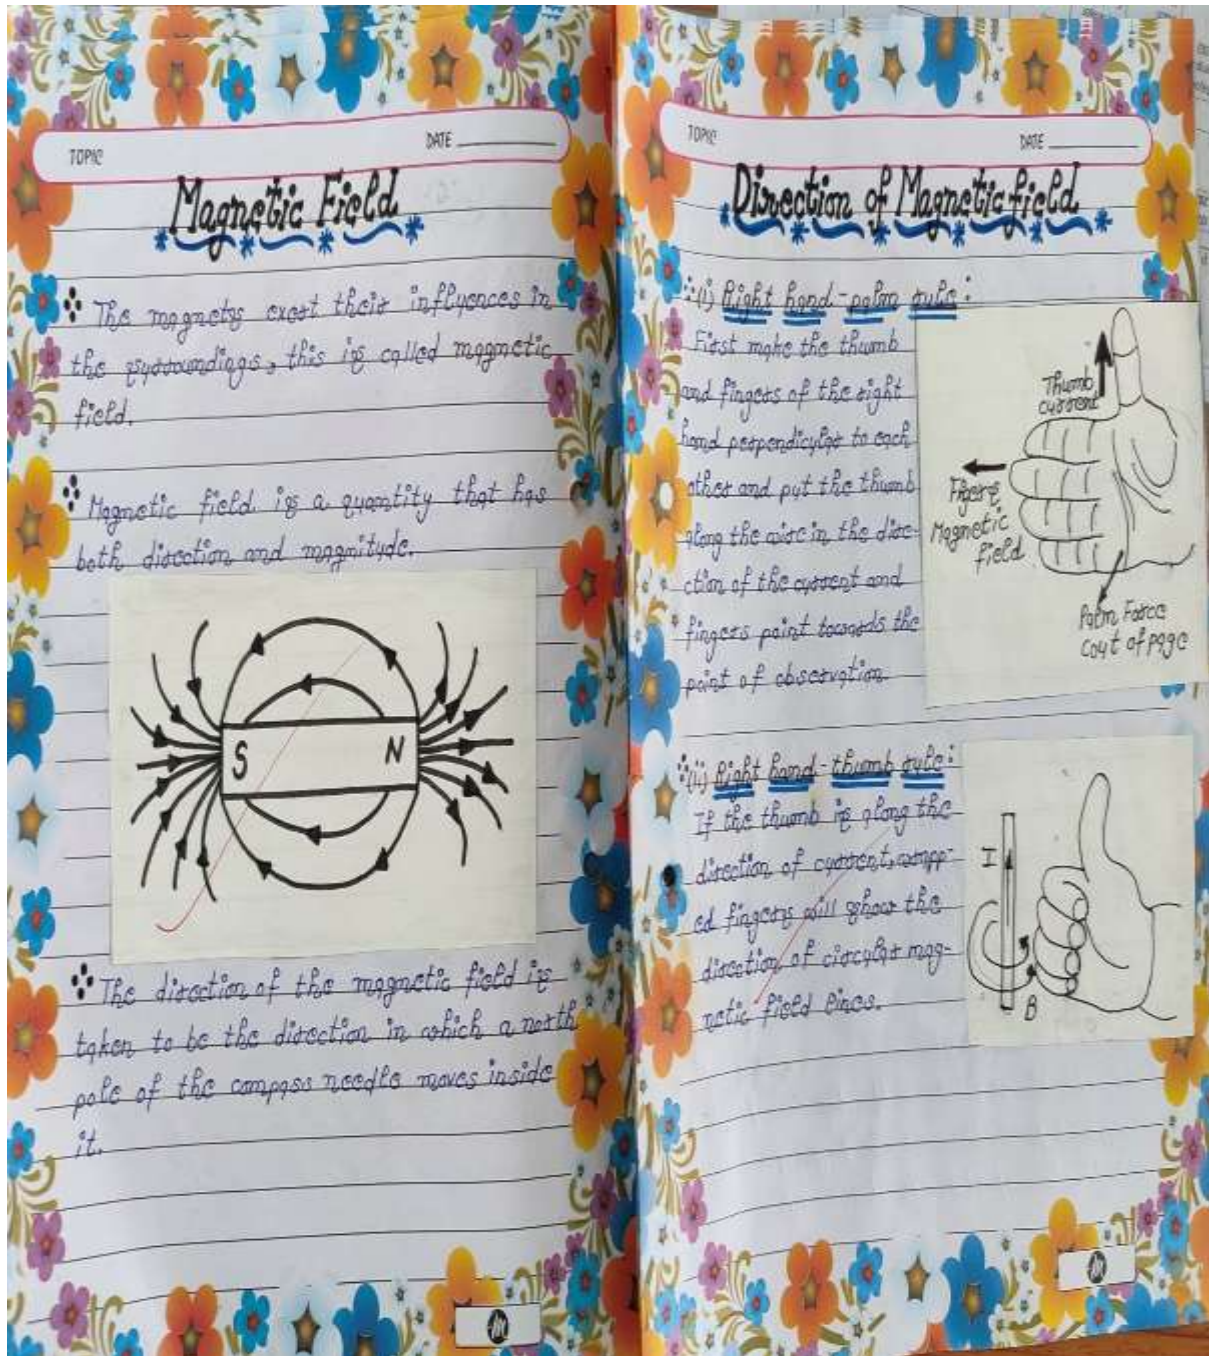 TOPIC
DATE
Magnetic Field
The magnets exert their influences in
the surroundings, this is called magnetic
field.
Magnetic field is a quantity that has
both direction and magnitude.
S
N
The direction of the magnetic field is
taken to be the direction in which a north
pole of the compass needle moves inside
it.
TOPIC
DATE
Direction of Magnetic field
(i) Right hand-palm rule:
First make the thumb
and fingers of the right
hand perpendicular to each
other and put the thumb
along the wire in the dire-
ction of the current and
fingers point towards the
point of observation.
Thumb,
current
Figers
Magnetic
field
Palm Force
cout of page
(ii) Right hand-thumb rule:
If the thumb is along the
direction of current, wrapp-
ed fingers will show the
direction of circular mag-
netic field lines.
I
B